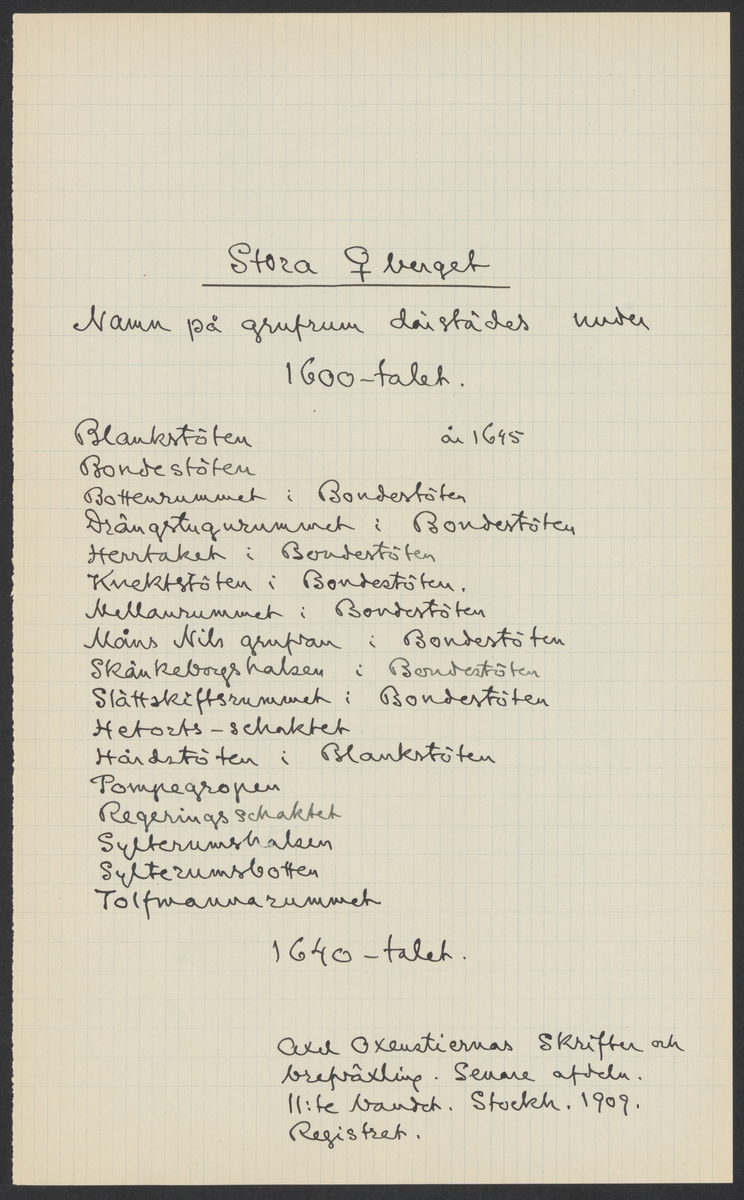 Stora ♀ berget
Namn på grufrum därstädes under
1600-talet.
Blankstöten år 1645
Bondestöten
Bottenrummet i Bondestöten
Drängstugurummet i Bondestöten
Herrtaket i Bondestöten
Knektstöten i Bondestöten.
Mellanrummet i Bondestöten
Måns Nils grufvan i Bondestöten
Skänkeborgshalsen i Bondestöten
Slättskiftsrummet i Bondestöten
Hetorts-schaktet
Hårdstöten i Blankstöten
Pompegropen
Regeringsschaktet
Sylterumshalsen
Sylterumsbotten
Tolfmannarummet
1640-talet.
Axel Oxenstiernas Skrifter och
brefväxling. Senare afdeln.
11:te bandet. Stockh. 1909.
Registret.